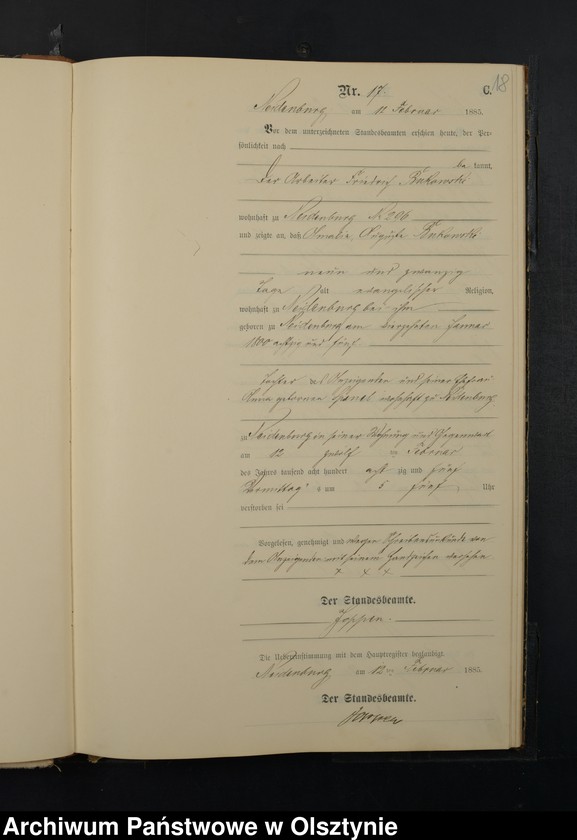 18
Nr. 17. C.
Neidenburg, am 12 Februar 1885.
Vor dem unterzeichneten Standesbeamten erschien heute, der Per-
sönlichkeit nach
be kannt,
der Arbeiter Friedrich
wohnhaft zu Neidenburg No 206
und zeigte an, daß Amalie, Auguste
neun und zwanzig
Tage alt evangelischer Religion,
wohnhaft zu Neidenburg bei ihm
geboren zu Neidenburg am vierzehnten Januar
1800 achtzig und fünf
Tochter des Anzeigenden und seiner Ehefrau
Anna geborenen wohnhaft zu Neidenburg
zu Neidenburg in seiner Wohnung und Gegenwart
am 12 zwölf ten Februar
des Jahres tausend acht hundert acht zig und fünf
Vormittag s um 5 fünf Uhr
verstorben sei
Vorgelesen, genehmigt und wegen Schreibensunkunde von
dem Anzeigenden mit seinem Handzeichen versehen
+ + +
Der Standesbeamte.
Die Uebereinstimmung mit dem Hauptregister beglaubigt
Neidenburg am 12ten Februar 1885.
Der Standesbeamte.
Archiwum Państwowe w Olsztynie